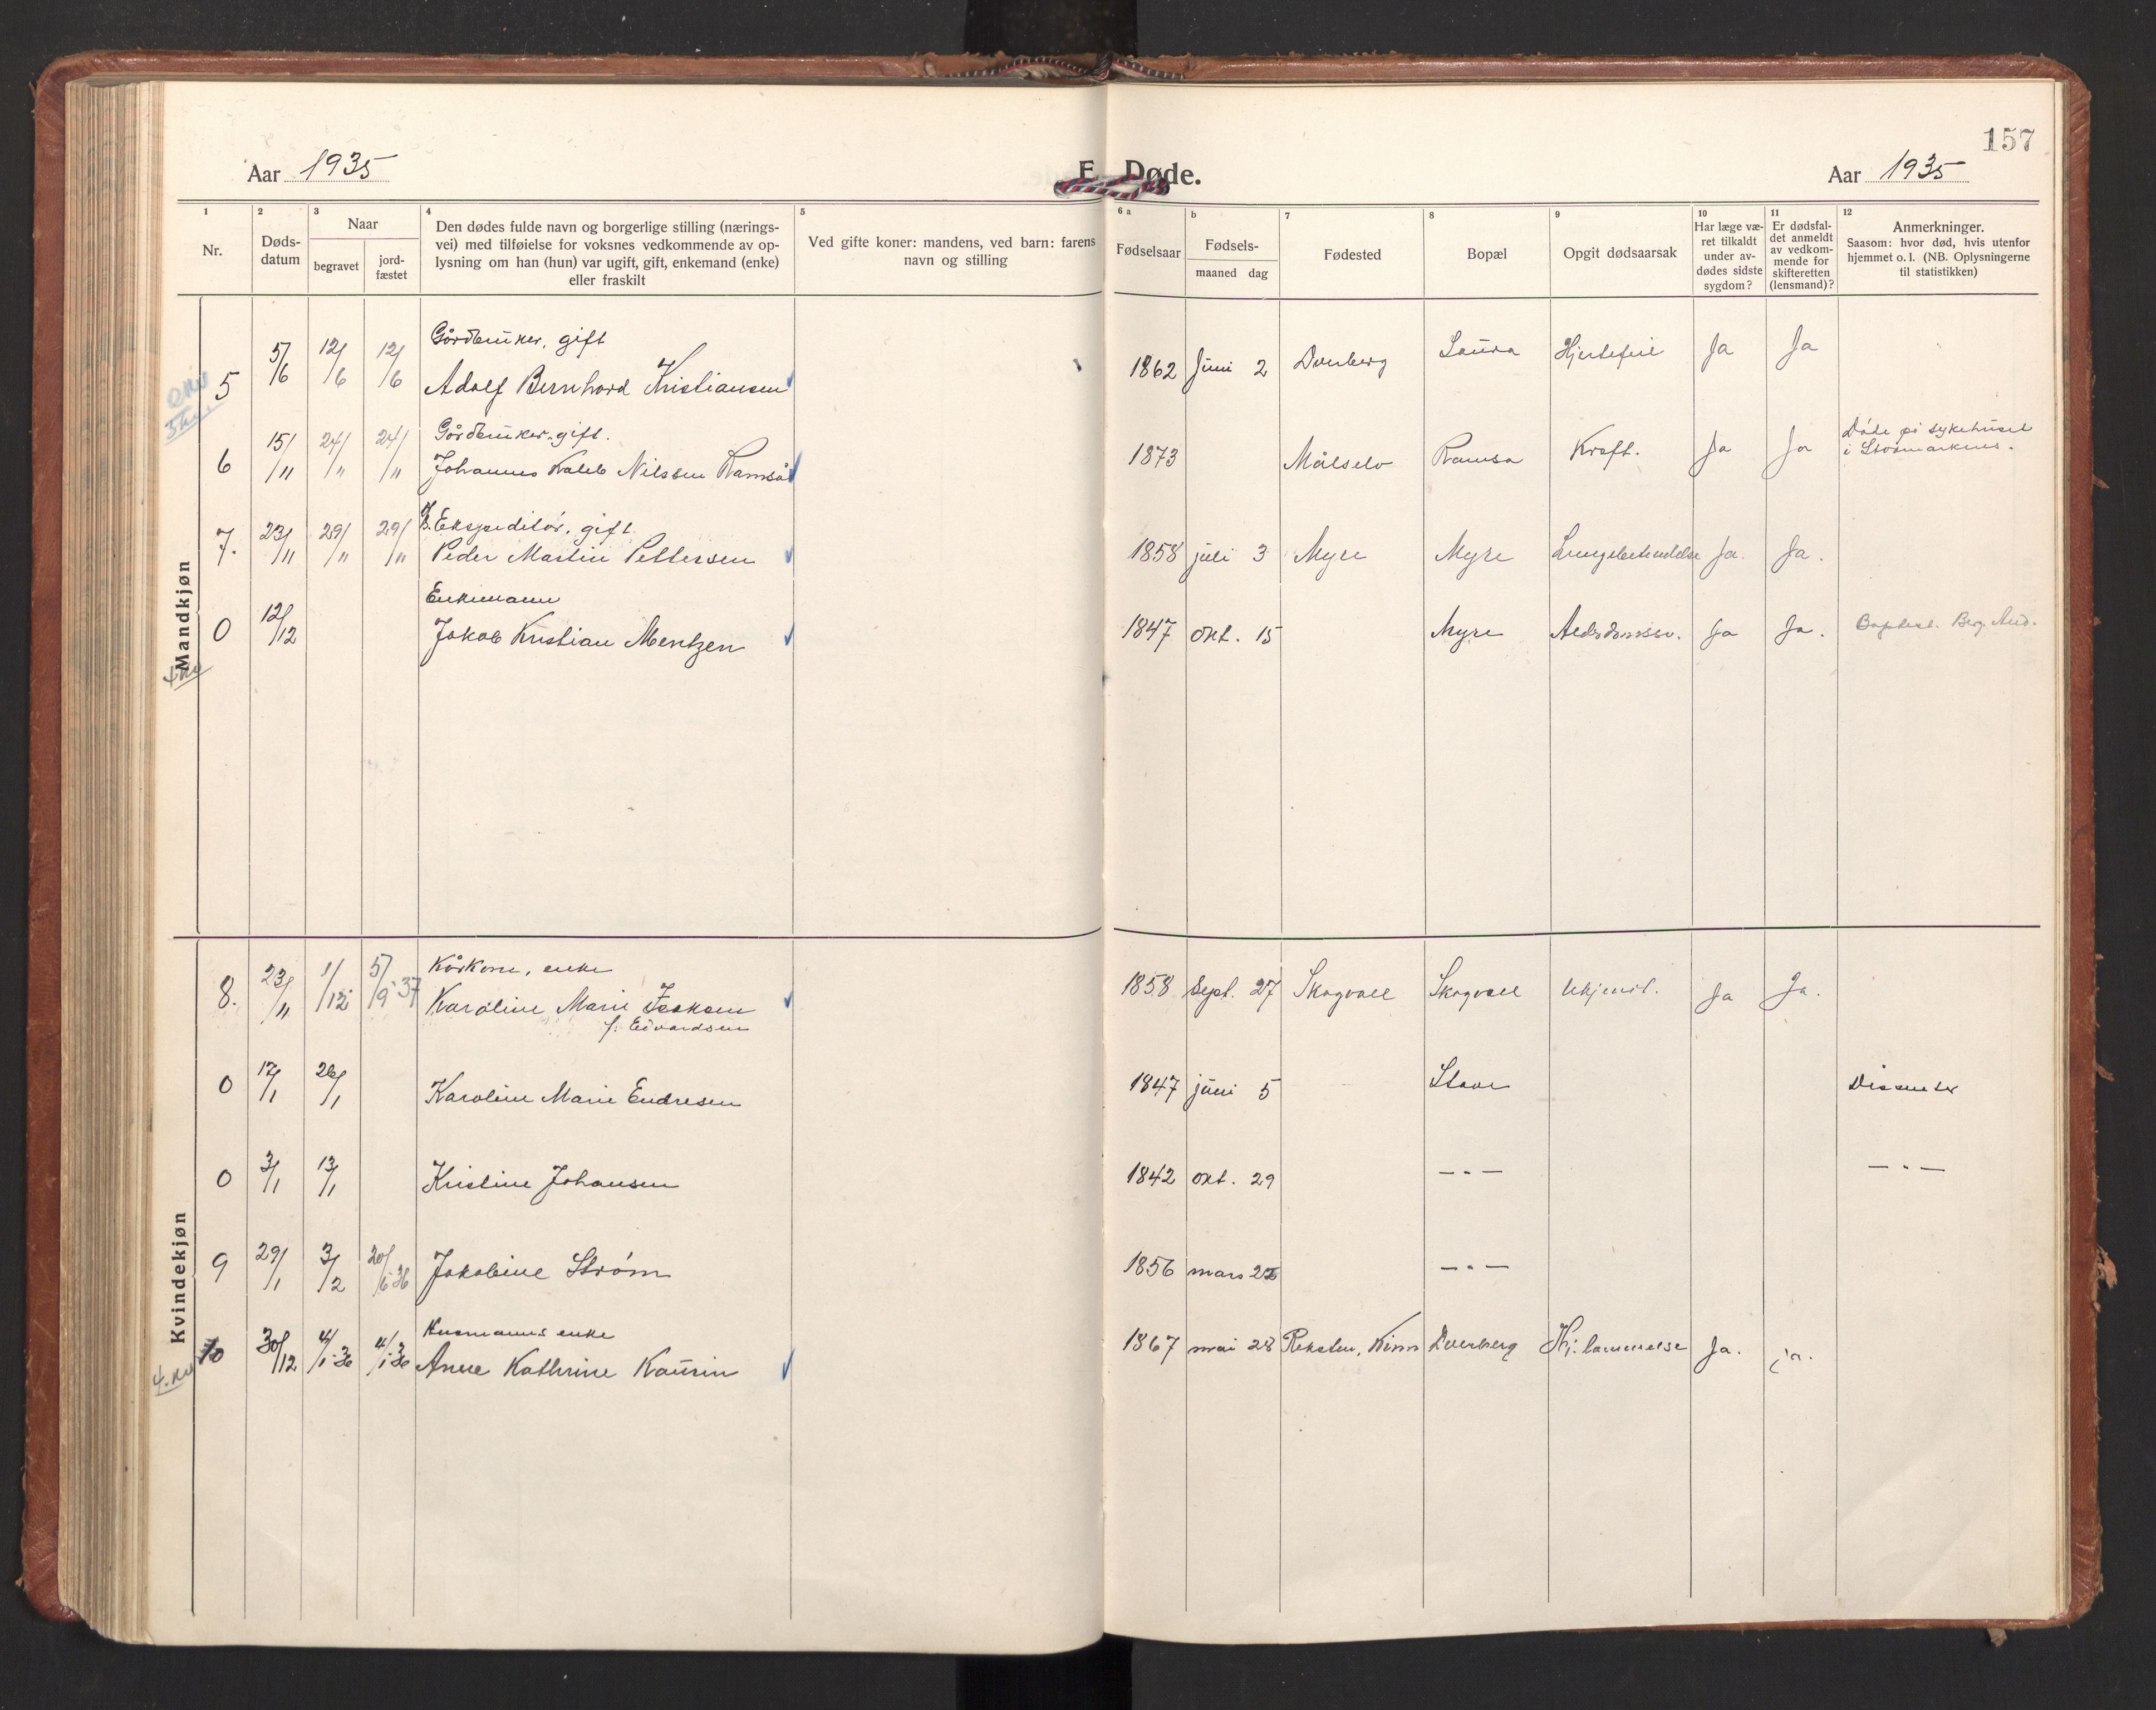 157
Aar 1935
E. Døde.
Aar 1935
1 Nr.
2 Døds-datum
3 Naar begravet jord-fæstet
4 Den dødes fulde navn og borgerlige stilling (nærings-vei) med tilføielse for voksnes vedkommende av op-lysning om han (hun) var ugift, gift, enkemand (enke) eller fraskilt
5 Ved gifte koner: mandens, ved barn: farens navn og stilling
6 a Fødselsaar
b Fødsels- maaned dag
7 Fødested
8 Bopæl
9 Opgit dødsaarsak
10 Har læge væ-ret tilkaldt under av-dødes sidste sygdom?
11 Er dødsfal-det anmeldt av vedkom-mende for skifteretten (lensmand)?
12 Anmerkninger. Saasom: hvor død, hvis utenfor hjemmet o. l. (NB. Oplysningerne til statistikken)
Mandkjøn
Gårdbruker, gift
5 5/6 12/6 12/6 Adolf Bernhard Kristiansen 1862 Juni 2 Dverberg Saura Hjertefeil Ja Ja
Gårdbruker, gift.
6 15/11 24/11 24/11 Johannes Kaleb Nilssen Ramså 1873 Målselv Ramsa Kreft. Ja Ja Døde på sykehuset
i Stokmarknes.
Ekspeditør, gift
7. 23/11 29/11 29/11 Peder Martin Pettersen 1858 juli 3 Myre Myre Lungebetendelse Ja. Ja.
Enkemann
0 12/12 Jakob Kristian Mentzen 1847 okt. 15 Myre Alderdomssv. Ja Ja. Baptist. Berg, And.
Kvindekjøn
Kårkone, enke
8. 23/11 1/12 5/9-37 Karoline Marie Isaksen 1858 Sept. 27 Skogvoll Skogvoll Ukjent. Ja Ja.
f. Edvardsen
0 17/1 26/1 Karoline Marie Endresen 1847 juni 5 Stave Dissenter
0 3/1 13/1 Kristine Johansen 1842 okt. 29 — " — — " —
9 29/1 3/2 20/6-36 Jakobine Strøm 1856 mars — " —
Husmanns enke
10 30/12 4/1-36 4/1-36 Anne Kathrine Kaurin 1867 mai 28 Reksten, Kinn Dverberg Hj. lammelse Ja. ja.
4. kv